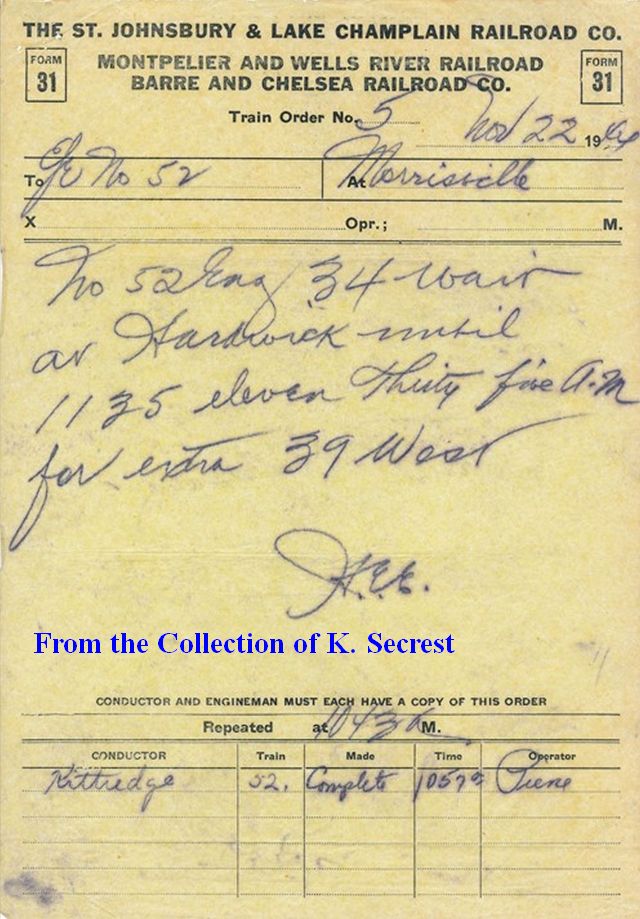 THE ST. JOHNSBURY & LAKE CHAMPLAIN RAILROAD CO.
FORM 31 MONTPELIER AND WELLS RIVER RAILROAD FORM 31
BARRE AND CHELSEA RAILROAD CO.
Train Order No. 5 Nov 22 19
To No 52 At Morrisville
X Opr.; M.
No 52 Eng 34 wait
at Hardwick until
1135 eleven thirty five A.M
for extra 39 West
H.E.E.
From the Collection of K. Secrest
CONDUCTOR AND ENGINEMAN MUST EACH HAVE A COPY OF THIS ORDER
Repeated at 1043 A M.
CONDUCTOR Train Made Time Operator
Kittredge 52. Complete 1057